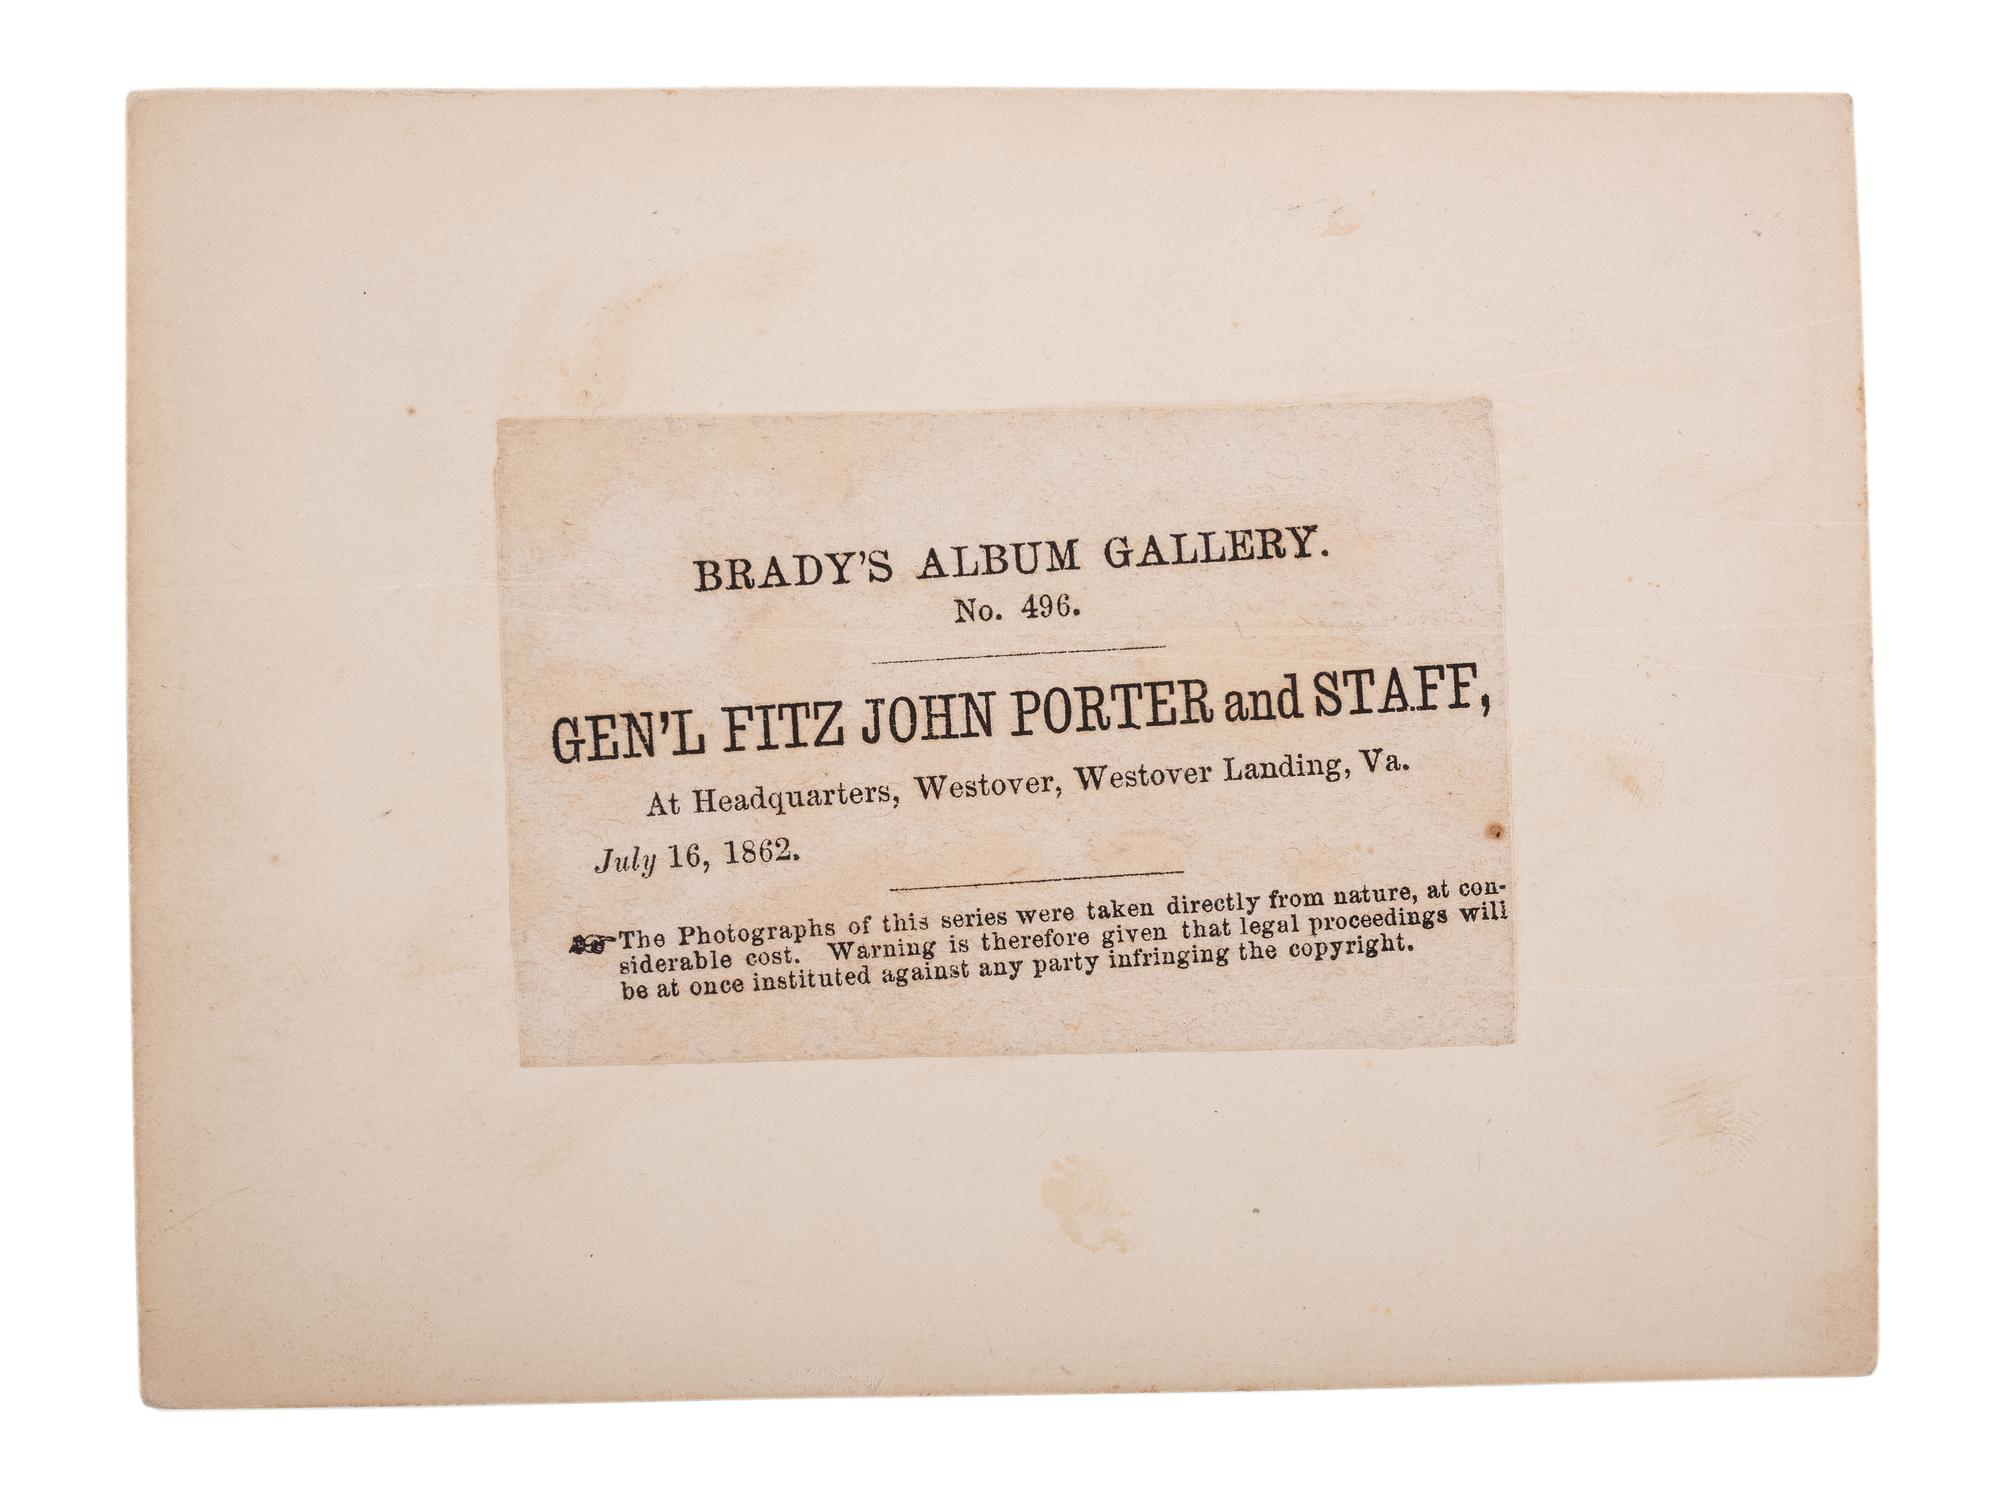 BRADY'S ALBUM GALLERY.
No. 496.
GEN'L FITZ JOHN PORTER and STAFF,
At Headquarters, Westover, Westover Landing, Va.
July 16, 1862.
☞The Photographs of this series were taken directly from nature, at con-
siderable cost. Warning is therefore given that legal proceedings will
be at once instituted against any party infringing the copyright.